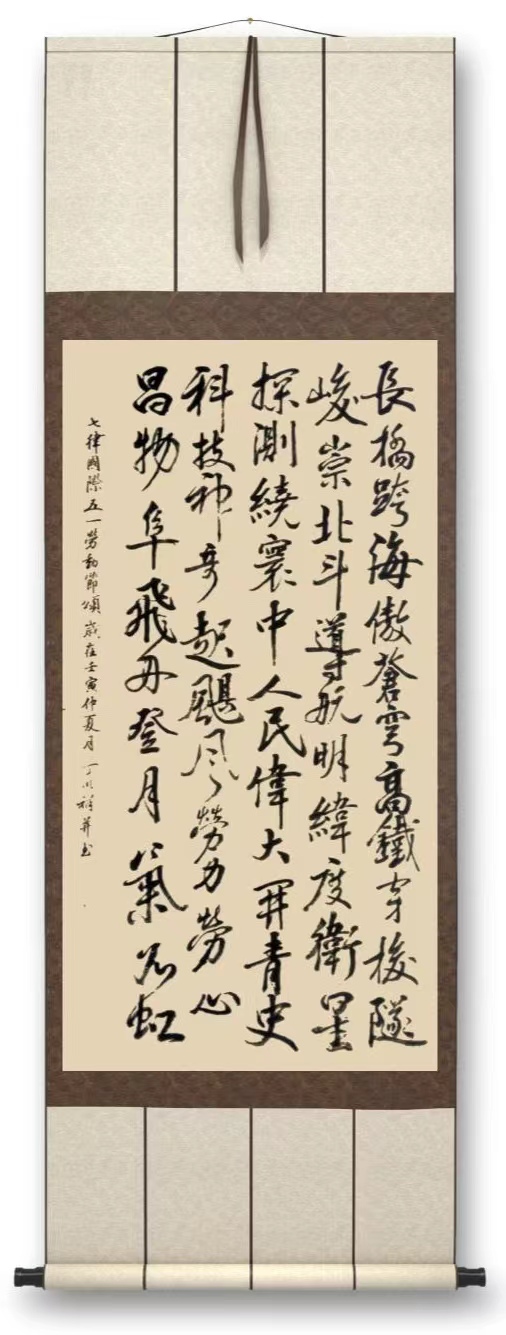 長橋跨海傲蒼穹高鐵穿梭隧
峻崇北斗導航明緯度衛星
探測繞寰中人民偉大開青史
科技神奇起颶风勞力勞心
昌物阜飛舟登月氣如虹
七律國際五一勞動節頌歲在壬寅仲夏月丁并书